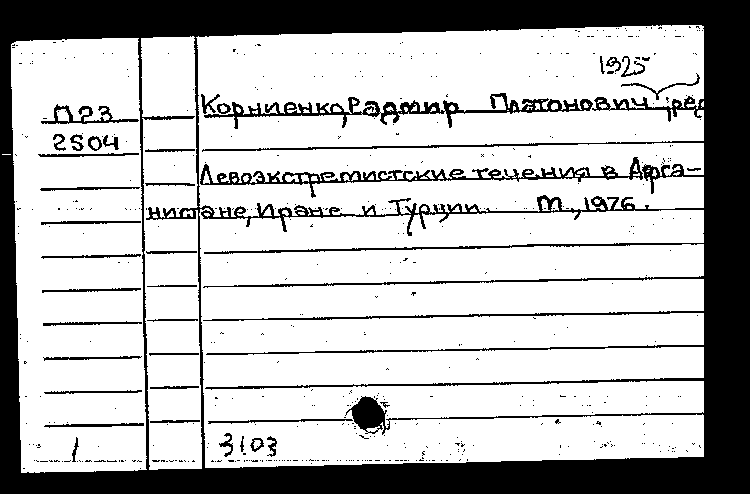 1925
П23
Корниенко, Радмир Платонович; ред
2504
Левоэкстремистские течения в Афга-
нистане, Иране и Турции. М., 1976.
1 3103